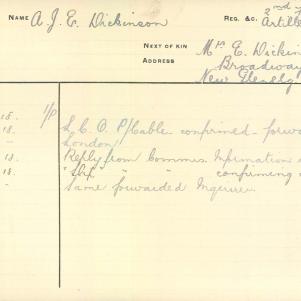 NAME A. J. E. Dickinson
REG. &C. 2nd
Artille
NEXT OF KIN Mrs E. Dickin
ADDRESS Broadway
New
18. I/P
18. L.C.O. P/Cable confirmed forwa
London
18. Reply from Commns. Information
18. " " " confirming
Same forwaded Enquirer